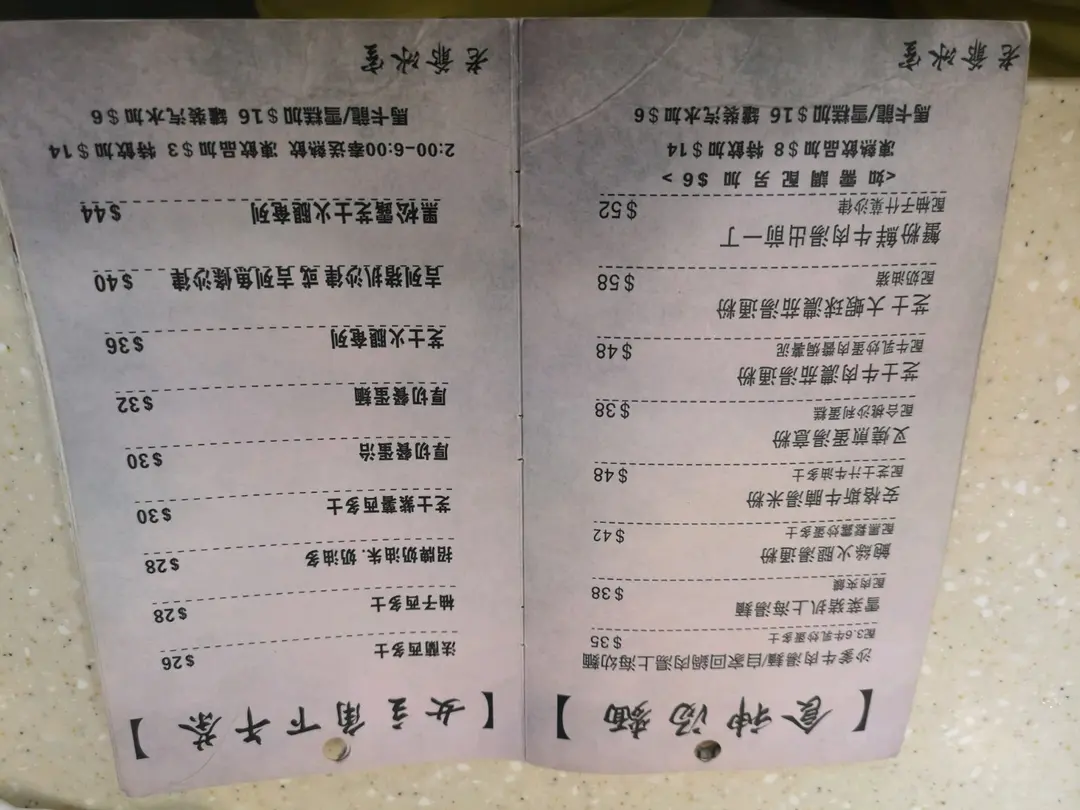 【食神汤麵】
沙爹牛肉湯麵/自家回鍋肉湯上海幼麵
配3.6牛乳炒蛋多士 $35
雪菜豬扒上海湯麵
配肉夾饃 $38
鮑絲火腿湯通粉
配黑松露炒蛋多士 $42
安格斯牛腩湯米粉
配芝士汁牛油多士 $48
叉燒煎蛋湯意粉
配合桃沙利蛋糕 $38
芝士牛肉濃茄湯通粉
配牛乳炒蛋肉醬焗薯泥 $48
芝士大蝦球濃茄湯通粉
配奶油豬 $58
蟹粉鮮牛肉湯出前一丁
配柚子什菜沙律 $52
<如需調配另加 $6>
凍熱飲品加$8 特飲加$14
馬卡龍/雪糕加$16 罐裝汽水加$6
老爺冰室
【女主角下午茶】
法蘭西多士 $26
柚子西多士 $28
招牌奶油朱.奶油多 $28
芝士紫薯西多士 $30
厚切餐蛋治 $30
厚切餐蛋麵 $32
芝士火腿奄列 $36
吉列豬扒沙律 或 吉列魚條沙律 $40
黑松露芝士火腿奄列 $44
2:00-6:00奉送熱飲 凍飲品加$3 特飲加$14
馬卡龍/雪糕加$16 罐裝汽水加$6
老爺冰室